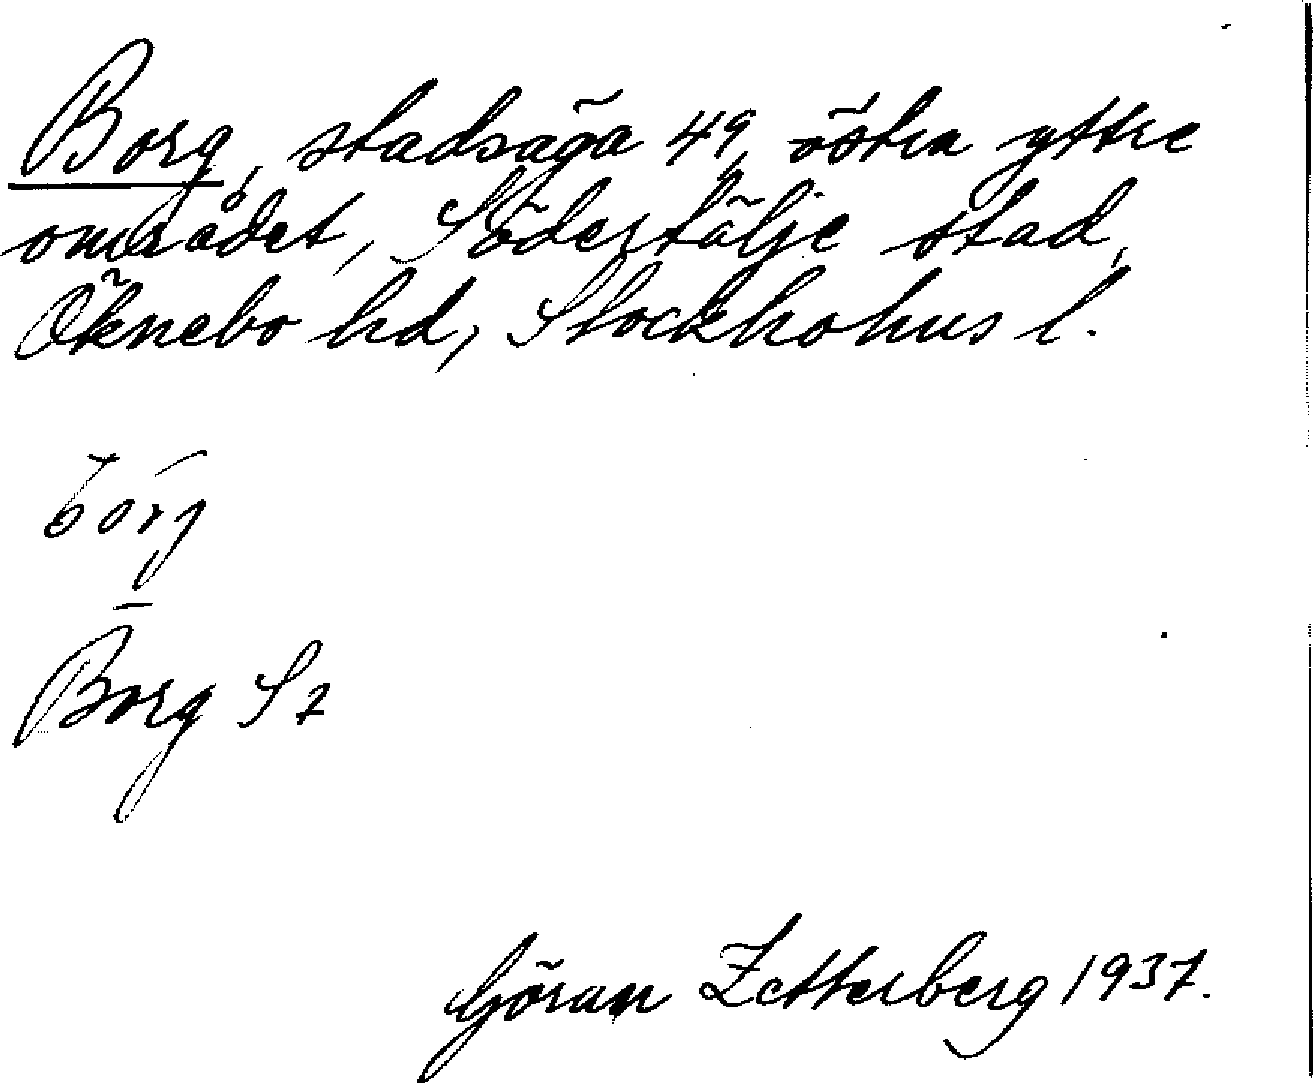 Borg, stadsäga 49, östra yttre
området, Södertälje stad,
Öknebo hd, Stockholms l.
bórg
Borg S2
Göran Zetterberg 1937.